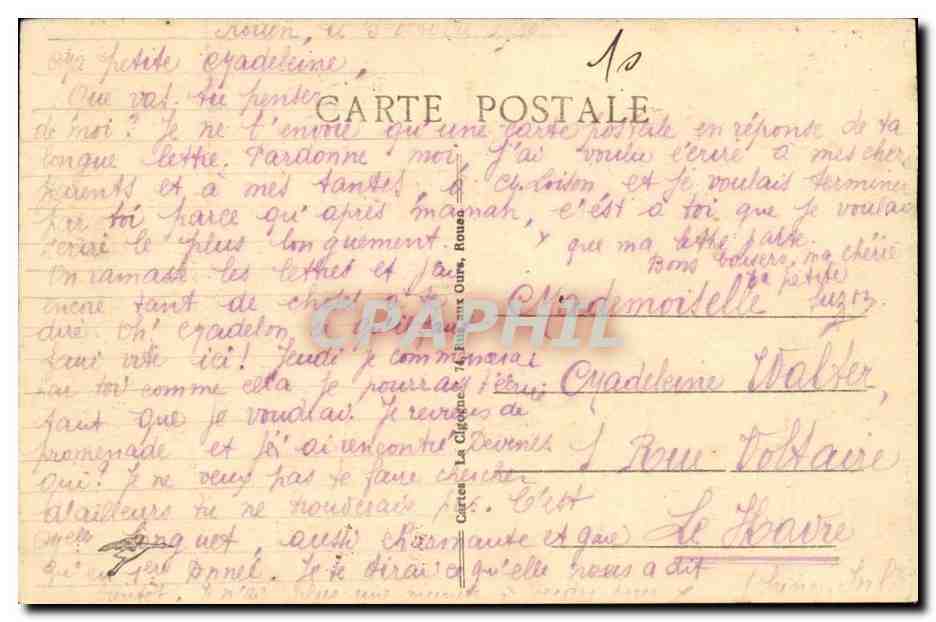 Rouen, le
petite Madeleine,
Que vas-tu penser
CARTE POSTALE
de moi? Je ne t'envoie qu'une carte postale en réponse de ta
longue lettre. Pardonne moi, j'ai voulu écrire à mes chers
parents et à mes tantes, à Ch. Loison, et je voulais terminer
par toi parce qu'après maman, c'est à toi que je voulais
écrire le plus longuement. que ma lettre parte.
Bons baisers, ma chérie
ta petite
Suzon.
On ramasse les lettres et j'ai
encore tant de choses à te
dire Oh! Madelon,
vite ici! Jeudi je commencerai
par toi comme cela je pourrai t'écrire
tant que je voudrai. Je reviens de
promenade et j'ai rencontré Devines
qui? Je ne veux pas te faire chercher
d'ailleurs tu ne trouverais pas. C'est
Melle Janguet, aussi charmante et gaie
qu'en 1ère année. Je te dirai ce qu'elle nous a dit
Mademoiselle
Madeleine Walter,
1 Rue Voltaire
Le Havre
10
Cartes La Cigogne 74, Rue aux Ours, Rouen
CPAPHIL